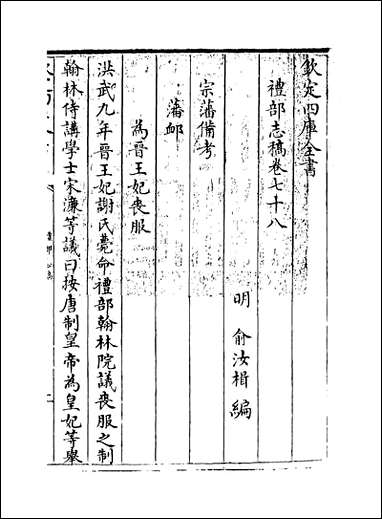 欽定四庫全書
禮部志稿卷七十八
明 俞汝楫 編
宗藩備考
藩邮
為晉王妃喪服
洪武九年晉王妃謝氏薨命禮部翰林院議喪服之制
翰林侍講學士宋濂等議曰按唐制皇帝為皇妃等舉